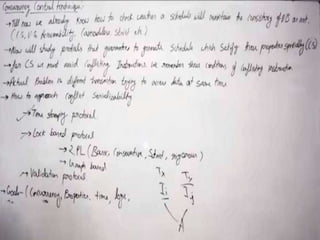 Concurrency Control Technique:-
→ Till now we already know how to check whether a schedule will maintain the consistency of DB or not.
(CS, VS, Recoverability, Cascadeless, Strict etc)
→ Now will study protocols that guarantee to generate schedule which satisfy these properties specially (CS)
→ for CS we must avoid conflicting Instructions we remember three conditions of conflicting instruction
→ Actual Problem is different transaction trying to access data at same time
→ How to approach conflict serializability
→ Time stamping protocol
→ Lock based protocol
→ 2PL (Basic, Conservative, Strict, rigorous)
→ Graph based
→ Validation protocol
→ Goals - (Concurrency, Properties, time, logic,
Tx Ty
Ii Ij
A